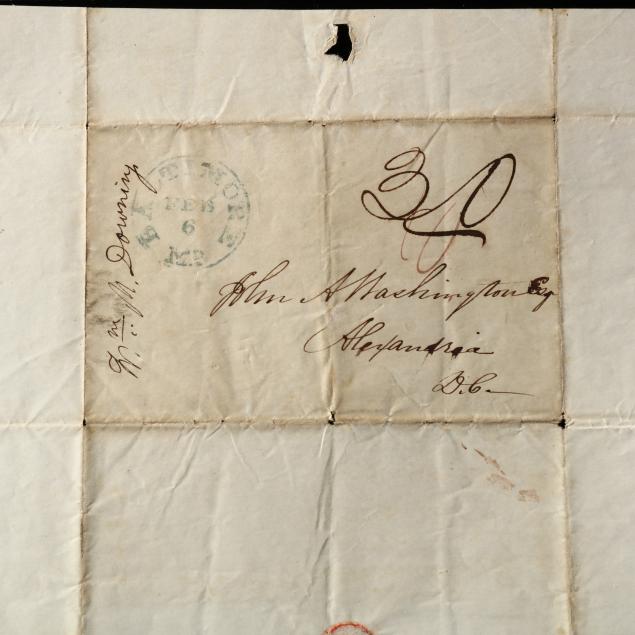 Wm. N. Downing
BALTIMORE
FEB
6
MD
30
John A Washington Esq
Alexandria
D.C.